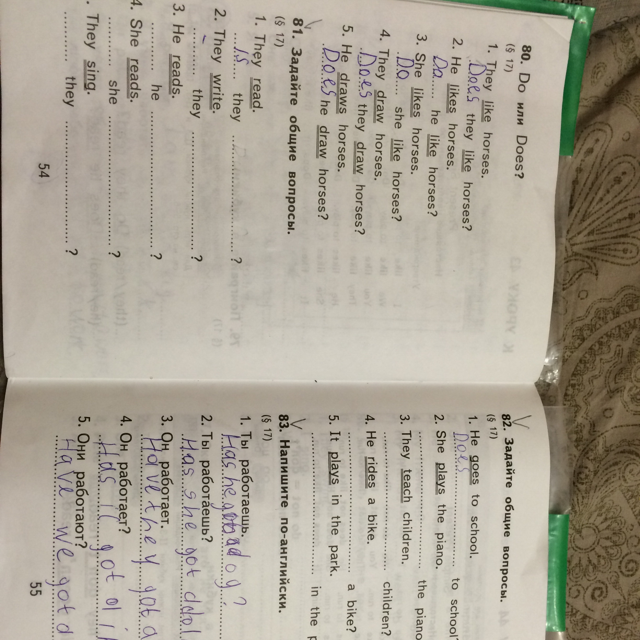 80. Do или Does?
(§ 17)
1. They like horses.
Does they like horses?
2. He likes horses.
Do he like horses?
3. She likes horses.
Do she like horses?
4. They draw horses.
Does they draw horses?
5. He draws horses.
Does he draw horses?
81. Задайте общие вопросы.
(§ 17)
1. They read.
is they ?
2. They write.
they ?
3. He reads.
he ?
4. She reads.
she ?
. They sing.
they ?
54
82. Задайте общие вопросы.
(§ 17)
1. He goes to school.
Does to school
2. She plays the piano.
the piano
3. They teach children.
children?
4. He rides a bike.
a bike?
5. It plays in the park.
in the p
83. Напишите по-английски.
(§ 17)
1. Ты работаешь.
Has he got a dog?
2. Ты работаешь?
Has she got a
3. Он работает.
Have they got a
4. Он работает?
Has it got a
5. Они работают?
Have we got d
55